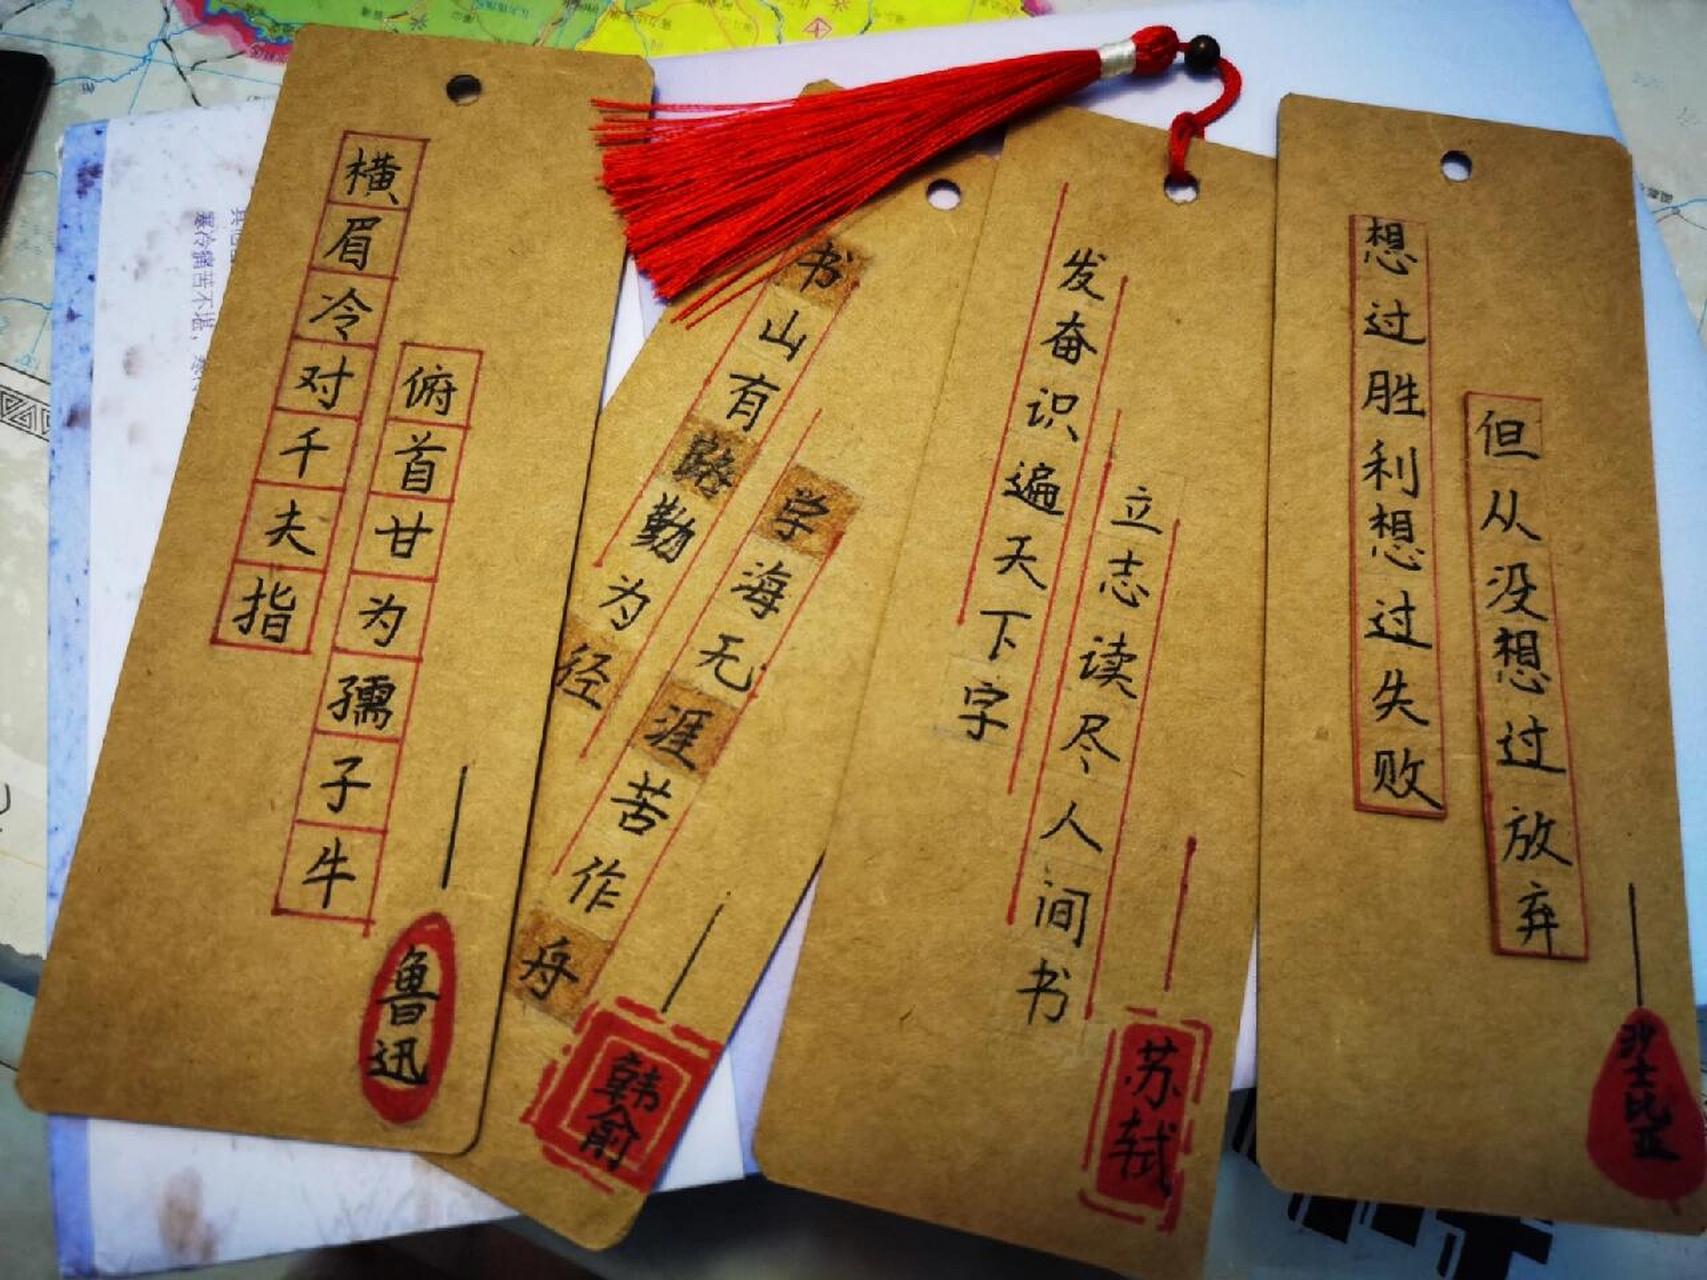 横眉冷对千夫指
俯首甘为孺子牛
鲁迅
书山有路勤为径
学海无涯苦作舟
韩俞
发奋识遍天下字
立志读尽人间书
苏轼
想过胜利想过失败
但从没想过放弃
沙士比亚
寒冷痛苦不堪，